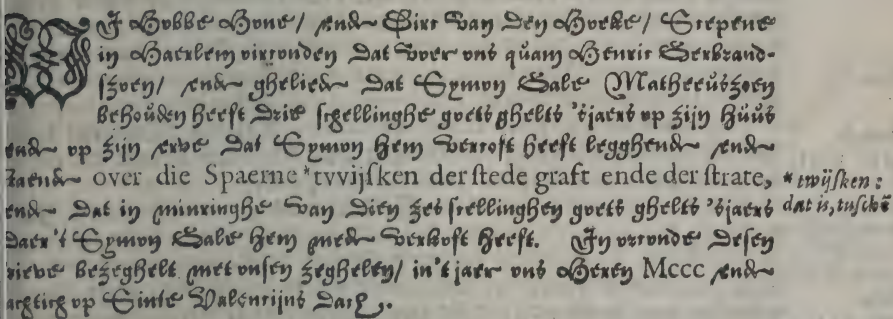 WI Hobbe Hone/ ende Dirc van den Hoeke/ Scepene
in Haerlem oirconden dat voer ons quam Henric Gerbrand-
szoen/ ende ghelieden dat Symon Sale Matheeuszoen
behouden heeft drie scellinghe goets ghelts 'sjaers op zijn huus
ende op zijn erve dat Symon hem vercoft heeft legghende ende
staende over die Spaerne *tvvijſken der ſtede graft ende der ſtrate,
ende dat in minringhe van dien zes scellinghen goets ghelts 'sjaers
daer 't Symon Sale hem mede verkoft heeft. In orconde desen
brieve bezeghelt met onsen zeghelen/ in't jaer ons Heren Mccc ende
achtich op Sinte Valentijns dach.
* twijſken:
dat is, tuſchē